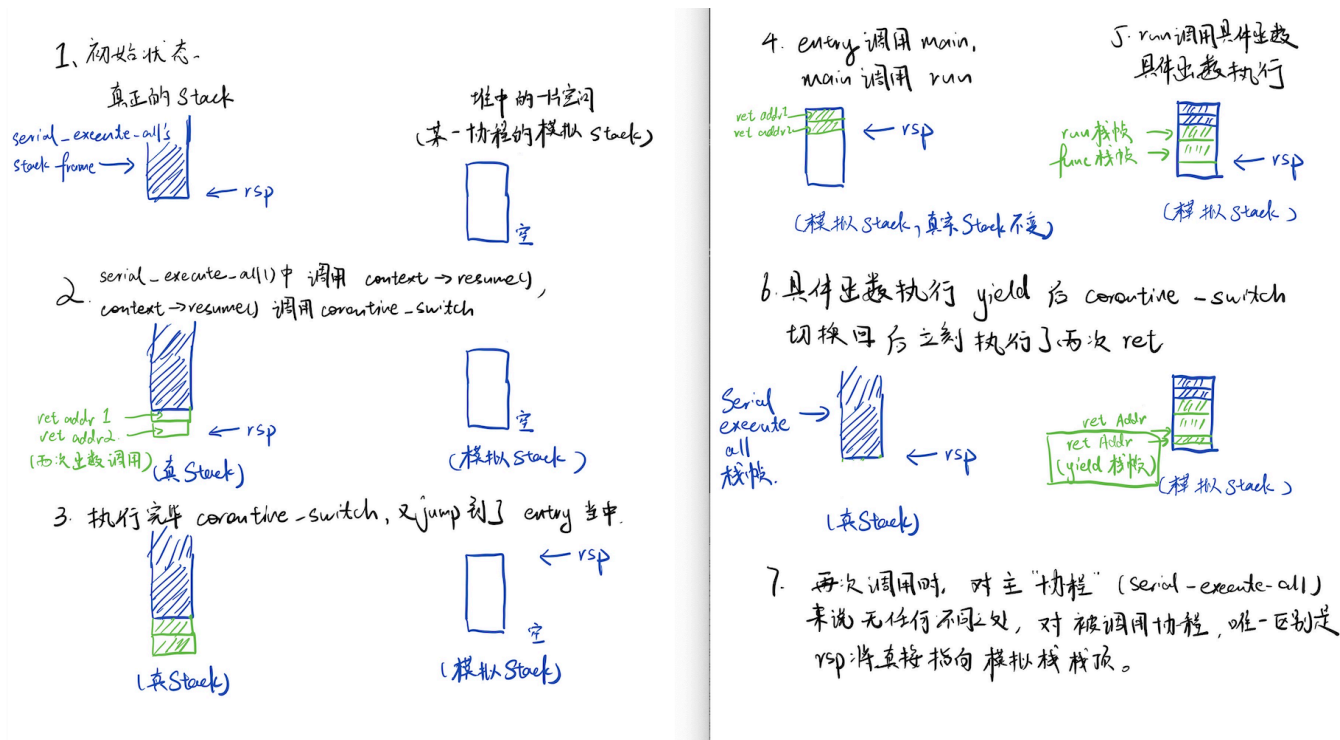 1、初始状态.
真正的 Stack
堆中的一片空间
(某一协程的模拟 Stack)
serial_execute-all's
Stack frame
rsp
空
2. serial_execute-all()中 调用 context→resume(),
context→resume() 调用 coroutine_switch
ret addr 1
ret addr2.
(两次函数调用)
rsp
(真 Stack)
空
(模拟 Stack)
3. 执行完毕 coroutine_switch, 又jump到了 entry 当中.
rsp
空
(真Stack)
(模拟 Stack)
4. entry 调用 main,
main 调用 run
ret addr1
ret addr2
rsp
(模拟 Stack, 真实 Stack 不变)
5. run调用具体函数
具体函数执行
run 栈帧
func 栈帧
rsp
(模拟 Stack)
6. 具体函数执行 yield 后 coroutine_switch
切换回后立刻执行了两次 ret
Serial
execute
all
栈帧.
rsp
(真Stack)
ret Addr
ret Addr
(yield 栈帧)
(模拟 Stack)
7. 再次调用时, 对主"协程" (serial-execute-all)
来说无任何不同之处, 对被调用协程, 唯一区别是
rsp 将直接指向 模拟栈 栈顶。